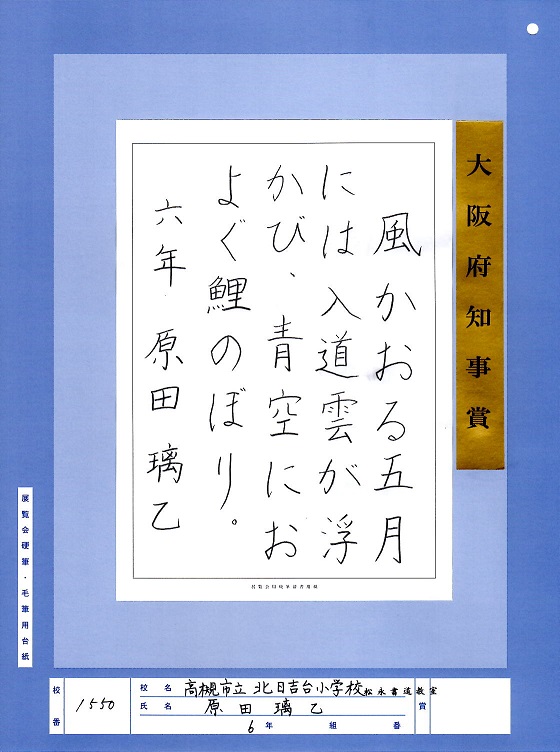 大阪府知事賞
風かおる五月
には入道雲が浮
かび、青空にお
よぐ鯉のぼり。
六年 原田 璃乙
展覧会硬筆・毛筆用台紙
校番 1550
校名 高槻市立 北日吉台小学校 松永書道教室
氏名 原田 璃乙
6年 組 番
賞